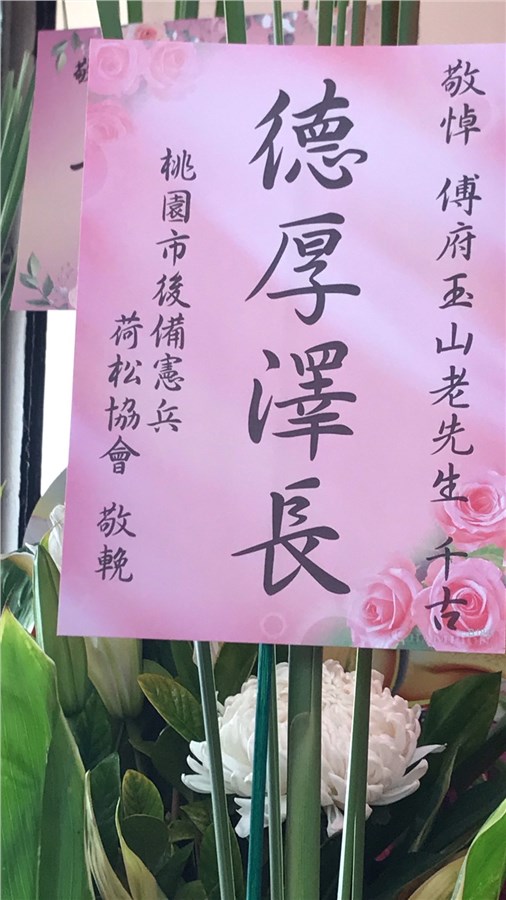 敬悼 傅府玉山老先生 千古
德厚澤長
桃園市後備憲兵
荷松協會 敬輓
敬